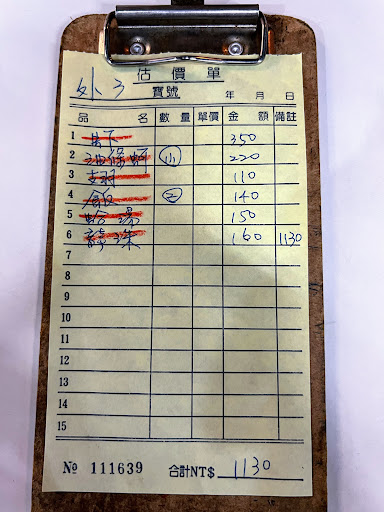 估價單
外3
寶號 年 月 日
品名 數量 單價 金額 備註
1 350
2 油條蚵 小 220
3 110
4 飯 2 140
5 蛤湯 150
6 龍珠 160 1130
7
8
9
10
11
12
13
14
15
№ 111639 合計NT$ 1130